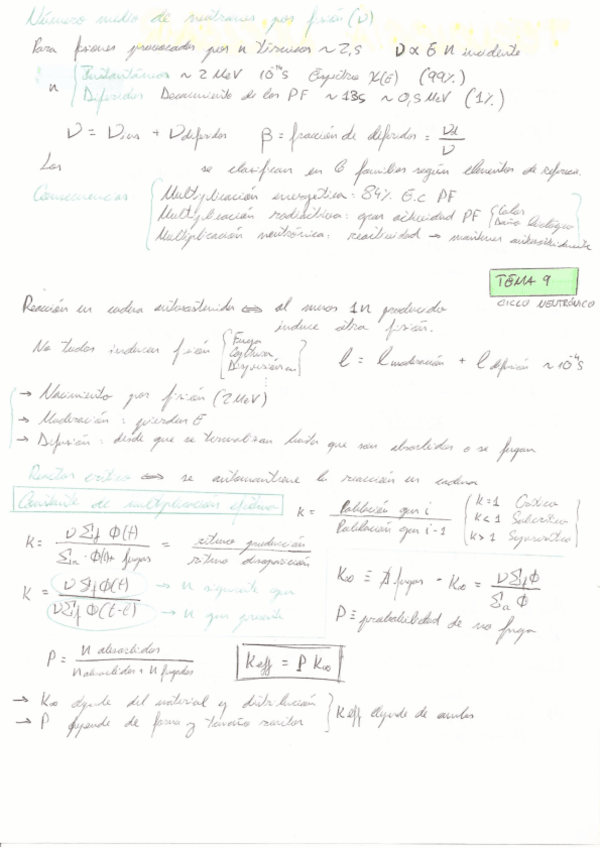 Número medio de neutrones por fisión (ν)
Para fisiones provocadas por n térmicos ~ 2,5 ν ∝ E n incidente
n { Instantáneos ~ 2 MeV 10⁻¹⁴s Espectro χ(E) (99%)
Diferidos Decaimiento de los PF ~ 13s ~ 0,5 MeV (1%)
ν = ν ins + ν diferidos β = fracción de diferidos = νd/ν
Los se clasifican en 6 familias según elementos de
Consecuencias { Multiplicación energética: 84% E.c PF
Multiplicación radiactiva: gran actividad PF { Calor Daño biológico
Multiplicación neutrónica: reactividad → mantener
TEMA 9
CICLO NEUTRÓNICO
Reacción en cadena autosostenida ⇔ al menos 1n producido
induce otra fisión.
No todos inducen fisión { Fuga
Captura
l = l moderación + l difusión ~ 10⁻⁴s
→ Nacimiento por fisión (2 MeV)
→ Moderación: pierden E
→ Difusión: desde que se termalizan hasta que son absorbidos o se fugan
Reactor crítico ⇔ se automantiene la reacción en cadena
Constante de multiplicación efectiva
K = Población gen i / Población gen i-1 { K=1 Crítico
K<1 Subcrítico
K>1 Supercrítico
K = νΣf Φ(t) / Σa·Φ(t)+ fugas = ritmo producción / ritmo desaparición
K = νΣf Φ(t) / νΣf Φ(t-l) → n siguiente gen
→ n gen presente
K∞ ≡ ∄ fugas - K∞ = νΣfΦ / Σa Φ
P ≡ probabilidad de no fuga
P = n absorbidos / n absorbidos + n fugados
Keff = P K∞
→ K∞ depende del material y distribución
→ P depende de forma y tamaño reactor } Keff depende de ambos